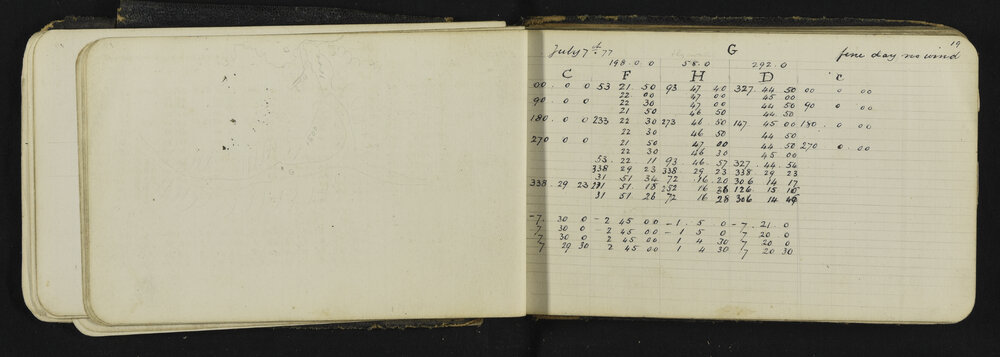 19
July 7th 77 G fine day no wind
198 . 0 0 58 . 0 292 . 0
C F H D C
00 . 0 0 53 21 50 93 47 40 327 . 44 50 00 0 00
22 00 47 00 45 00
90 . 0 0 22 30 47 00 44 50 90 0 00
21 50 46 50 44 50
180 . 0 0 233 22 30 273 46 50 147 45 00 180 . 0 00
22 30 46 50 44 50
270 0 0 21 50 47 00 44 50 270 0 00
22 30 46 30 45 00
53 . 22 11 93 . 46 . 57 327 . 44 . 54
338 29 23 338 29 23 338 . 29 23
31 51 34 72 16 20 306 14 17
338 . 29 23 51 18 252 16 36 126 . 15 10
31 51 26 72 16 28 306 14 44
-7 . 30 0 - 2 45 00 - 1 . 5 0 - 7 . 21 0
-7 30 0 - 2 45 00 - 1 5 0 7 20 0
7 30 0 2 45 00 1 4 30 7 20 0
7 29 30 2 45 00 1 4 30 7 20 30